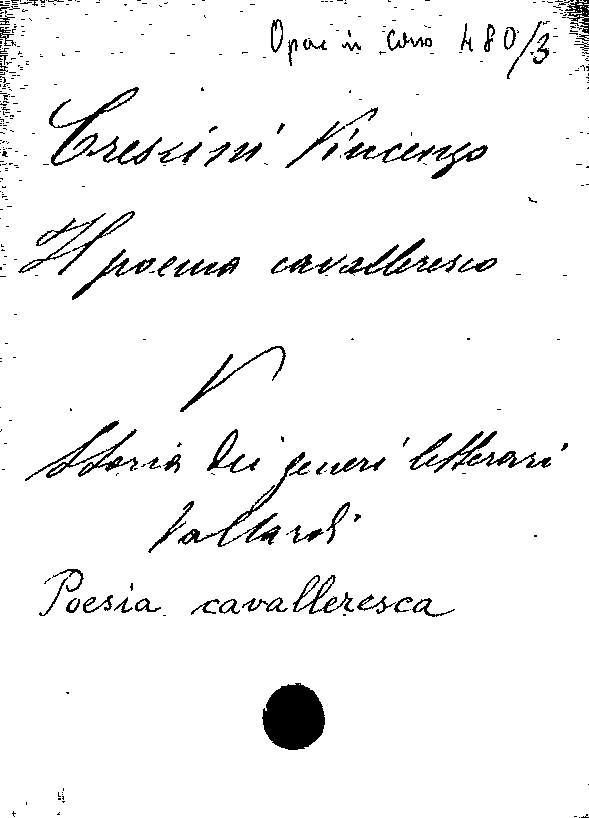 Opae in corso 480/3
Crescini Vincenzo
Il poema cavalleresco
V
Storia dei generi letterari
Vallardi
Poesia cavalleresca